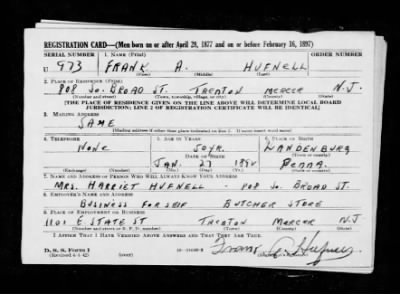 REGISTRATION CARD—(Men born on or after April 28, 1877 and on or before February 16, 1897)
SERIAL NUMBER 1. NAME (Print) ORDER NUMBER
U 973 FRANK A. HUFNELL
(First) (Middle) (Last)
2. PLACE OF RESIDENCE (Print)
808 So. BROAD ST. TRENTON MERCER N.J.
(Number and street) (Town, township, village, or city) (County) (State)
[THE PLACE OF RESIDENCE GIVEN ON THE LINE ABOVE WILL DETERMINE LOCAL BOARD
JURISDICTION; LINE 2 OF REGISTRATION CERTIFICATE WILL BE IDENTICAL]
3. MAILING ADDRESS
SAME
(Mailing address if other than place indicated on line 2. If same insert word same)
4. TELEPHONE 5. AGE IN YEARS 6. PLACE OF BIRTH
NONE 50 YR. LANDENBURG
DATE OF BIRTH (Town or county)
JAN. 27 PENNA.
(Mo.) (Day) (Yr.) (State or country)
7. NAME AND ADDRESS OF PERSON WHO WILL ALWAYS KNOW YOUR ADDRESS
MRS. HARRIET HUFNELL - 808 SO. BROAD ST.
8. EMPLOYER'S NAME AND ADDRESS
BUSINESS FOR SELF BUTCHER STORE
9. PLACE OF EMPLOYMENT OR BUSINESS
1101 E STATE ST TRENTON MERCER N.J
(Number and street or R. F. D. number) (Town) (County) (State)
I AFFIRM THAT I HAVE VERIFIED ABOVE ANSWERS AND THAT THEY ARE TRUE.
D. S. S. Form 1
(Revised 4-1-42) (over)